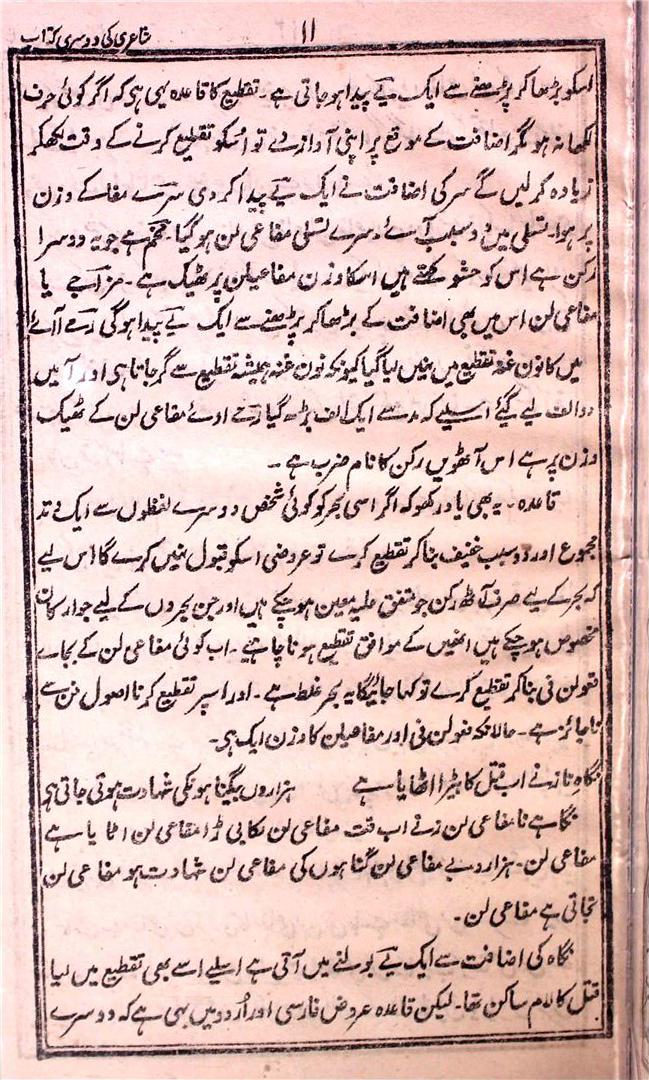 شاعری کی دوسری کتاب
۱۱
اسکو بڑھا کر پڑھنے سے ایک یے پیدا ہو جاتی ہے۔ تقطیع کا قاعدہ یہی ہی کہ اگر کوئی حرف
لکھا نہ ہو مگر اضافت کے موقع پر اپنی آواز دے تو اسکو تقطیع کرنے کے وقت لکھکر
زیادہ کر لیں گے سر کی اضافت نے ایک یے پیدا کر دی سرے مفا کے وزن
پر ہوا۔ تسلی میں دو سبب آئے دوسرے تسلی مفاعی لن ہو گیا۔ ہے جو یہ دوسرا
رکن ہے اس کو حشو کہتے ہیں اسکا وزن مفاعیلن پر ٹھیک ہے۔ مزا جے یا
مفاعی لن اس میں بھی اضافت کے بڑھا کر پڑھنے سے ایک یے پیدا ہو گی رے آئے
میں کا نون غنہ تقطیع میں نہیں لیا گیا کیونکہ نون غنہ ہمیشہ تقطیع سے گر جاتا ہی اور آ میں
دو الف لیے گئے اسلیے کہ مد سے ایک الف بڑھ گیا رے اادے مفاعی لن کے ٹھیک
وزن پر ہے اس آٹھویں رکن کا نام ضرب ہے۔
قاعدہ۔ یہ بھی یاد رکھو کہ اگر اسی بحر کو کوئی شخص دوسرے لفظوں سے ایک وتد
مجموع اور دو سبب خفیف بنا کر تقطیع کرے تو عروضی اسکو قبول نہیں کرے گا اس لیے
کہ بحر کے لیے صرف آٹھ رکن جو متفق علیہ معین ہو چکے ہیں اور جن بحروں کے لیے جو ارکان
مخصوص ہو چکے ہیں انھیں کے موافق تقطیع ہونا چاہیے۔ اب کوئی مفاعی لن کے بجاے
فعولن فی بنا کر تقطیع کرے تو کہا جائیگا یہ بحر غلط ہے۔ اور اسپر تقطیع کرنا اصول فن سے
ناجائز ہے۔ حالانکہ فعولن فی اور مفاعیلن کا وزن ایک ہی۔
نگاہ ناز نے اب قتل کا بیڑا اٹھایا ہے ہزاروں بیگناہونکی شہادت ہوتی جاتی ہی
نگا ہے نا مفاعی لن ز نے اب قت مفاعی لن لکا بی ڑا مفاعی لن اٹا یا ہے
مفاعی لن۔ ہزارو بے مفاعی لن گنا ہوں کی مفاعی لن شہادت ہو مفاعی لن
تجاتی ہے مفاعی لن۔
نگاہ کی اضافت سے ایک یے بولنے میں آتی ہے اسلیے اسے بھی تقطیع میں لیا
قتل کا لام ساکن تھا۔ لیکن قاعدہ عروض فارسی اور اُردو میں یہی ہے کہ دوسرے